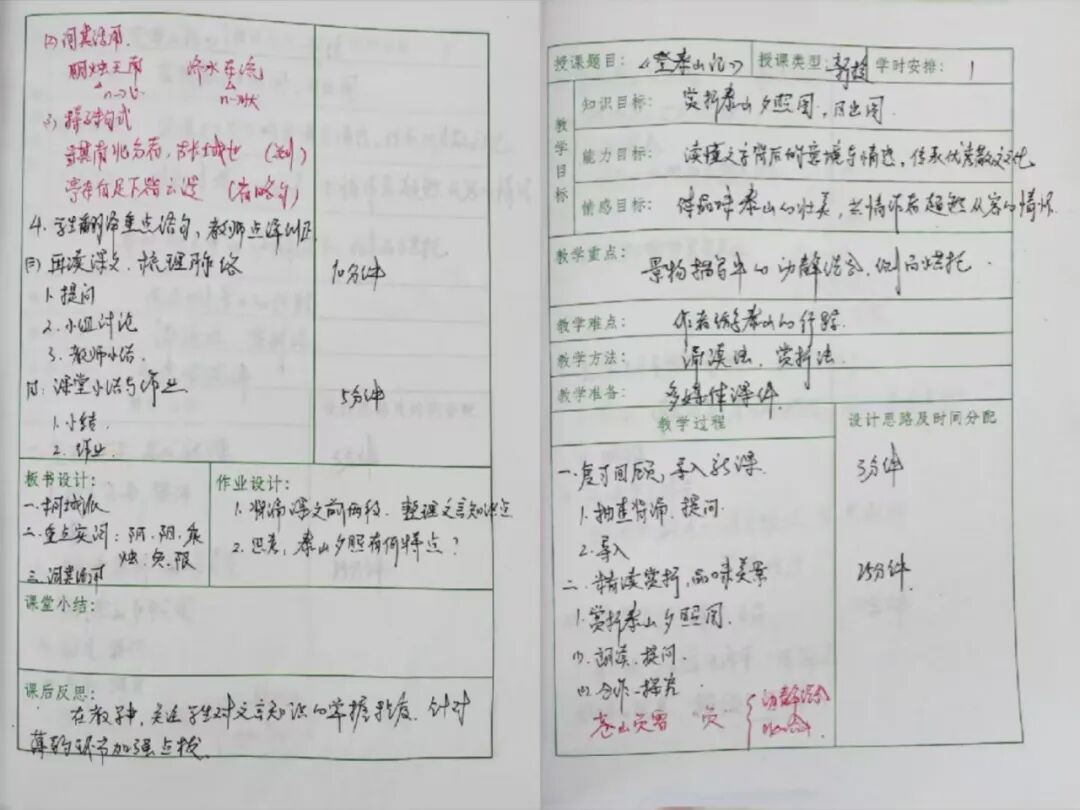 (2) 词类活用
明烛天南 汶水东流
n→v n→状
(3) 特殊句式
当其南北分者，古长城也 (判)
亭午自足下皆云漫 (省略句)
4. 学生翻译重点语句，教师点评纠正
(三) 再读课文，梳理脉络 10分钟
1. 提问
2. 小组讨论
3. 教师小结.
四: 课堂小结与作业 5分钟
1. 小结.
2. 作业
板书设计:
一. 桐城派
二. 重点实词: 阴. 阳.
烛. 负. 限
三. 词类活用
作业设计:
1. 背诵课文前两段. 整理文言知识点
2. 思考, 泰山夕照有何特点?
课堂小结:
课后反思:
在教学中, 关注学生对文言知识的掌握程度. 针对
薄弱环节加强点拨.
授课题目: 《登泰山记》 授课类型: 新授 学时安排: 1
教学目标
知识目标: 赏析泰山夕照图, 日出图
能力目标: 读懂文字背后的意境与情志, 传承优秀散文文化
情感目标: 体品味泰山的壮美, 共情作者超然从容的情怀
教学重点:
景物描写中的动静结合, 侧面烘托.
教学难点: 作者游泰山的行踪.
教学方法: 诵读法、赏析法
教学准备: 多媒体课件.
教学过程 设计思路及时间分配
一. 复习回顾, 导入新课. 3分钟
1. 抽查背诵, 提问.
2. 导入
二. 精读赏析, 品味美景 25分钟
1. 赏析泰山夕照图.
(1). 朗读. 提问.
(2) 合作. 探究
苍山负雪 "负" { 动静结合